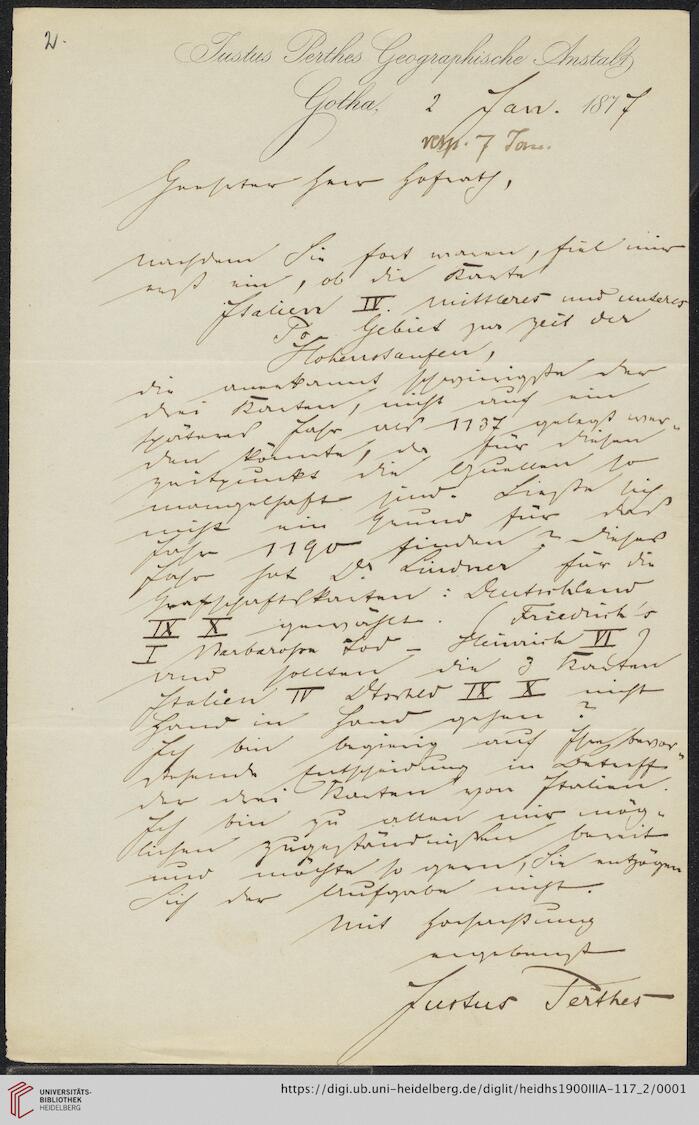 2.
Justus Perthes Geographische Anstalt
Gotha, 2 Jan. 1877
resp. 7 Jan.
Geehrter Herr Hofrath,
nachdem Sie fort waren, fiel mir
erst ein, ob die Karte
Italien IV. mittleres und unteres
Po-Gebiet zur Zeit der
Hohenstaufen,
die anerkannt schwierigste der
drei Karten, nicht auch ein
späteres Jahr als 1137 gelegt wer-
den könnte, da für diesen
Zeitpunkt die Quellen so
mangelhaft sind. Ließe sich
nicht ein Grund für das
Jahr 1190 finden? Dieses
Jahr hat Dr Lindner für die
Grafschaftskarten: Deutschland
IX X gewählt. (Friedrich's
I Barbarossa Tod – Heinrich VI)
und sollten die 3 Karten
Italien IV Dtschld IX X nicht
Hand in Hand gehen?
Ich bin begierig auf Ihre bevor-
stehende Entscheidung in Betreff
der drei Karten von Italien.
Ich bin zu allen mir mög-
lichen Zugeständnissen bereit
und möchte so gern, Sie entzögen
Sich der Aufgabe nicht.
Mit Hochachtung
ergebenst
Justus Perthes
UNIVERSITÄTS-
BIBLIOTHEK
HEIDELBERG
https://digi.ub.uni-heidelberg.de/diglit/heidhs1900IIIA-117_2/0001